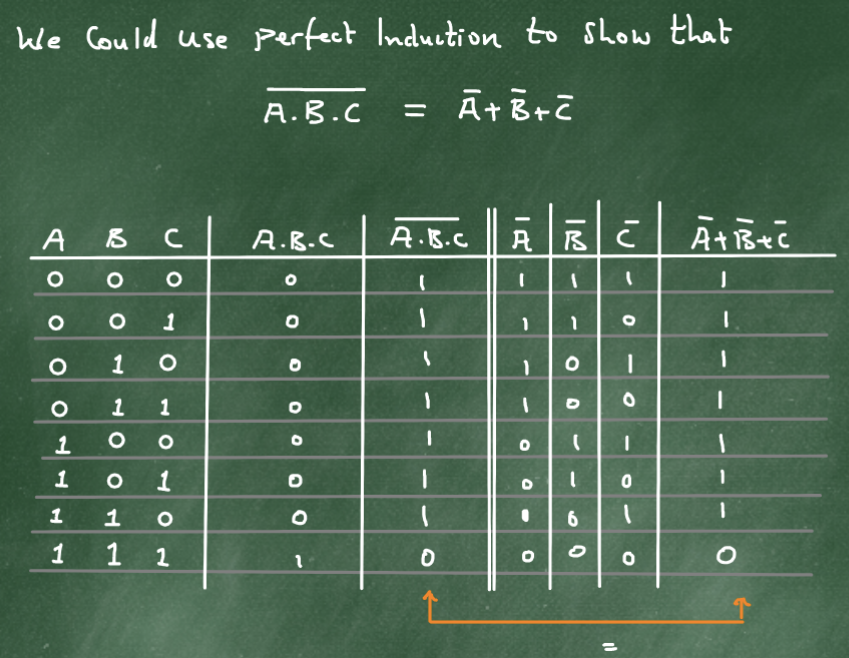 We Could use perfect Induction to show that
A̅.̅B̅.̅C̅ = A̅+B̅+C̅
A B C A.B.C A̅.̅B̅.̅C̅ A̅ B̅ C̅ A̅+B̅+C̅
0 0 0 0 1 1 1 1 1
0 0 1 0 1 1 1 0 1
0 1 0 0 1 1 0 1 1
0 1 1 0 1 1 0 0 1
1 0 0 0 1 0 1 1 1
1 0 1 0 1 0 1 0 1
1 1 0 0 1 0 0 1 1
1 1 1 1 0 0 0 0 0
=